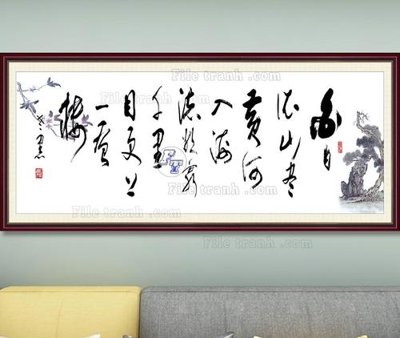 白日
依山尽
黄河
入海
流欲穷
千里
目更上
一层
楼
Filetranh .com
Filetranh .com
Filetranh .com
Filetranh .com